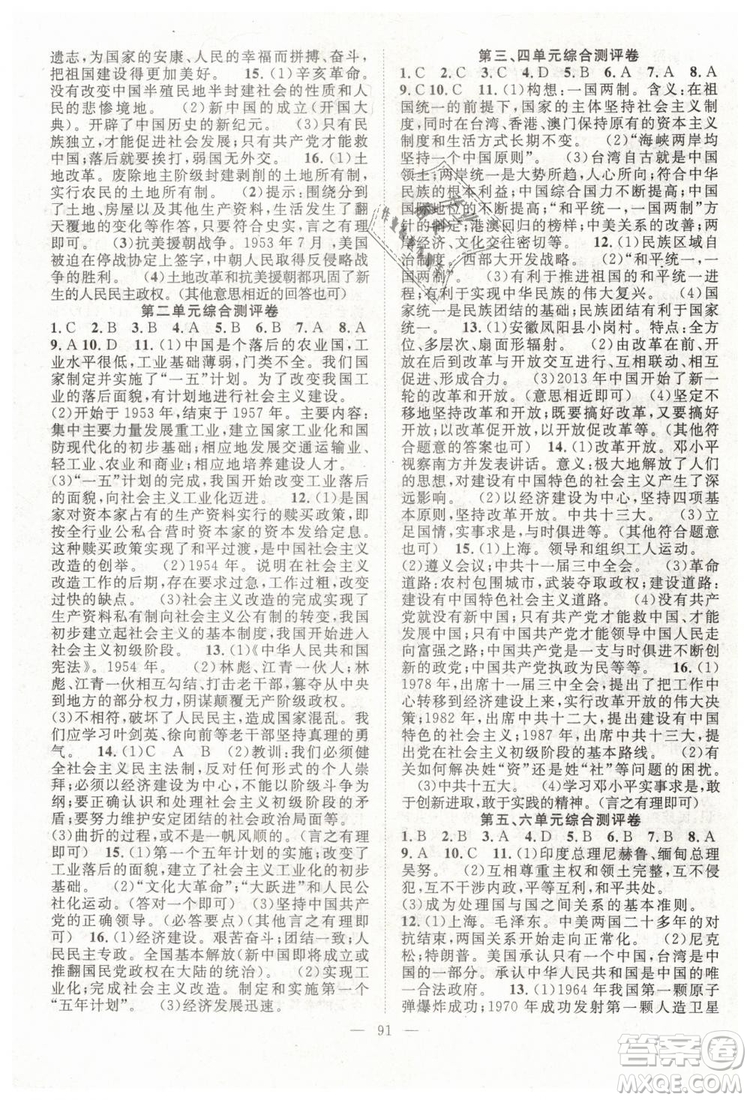 遗志，为国家的安康、人民的幸福而拼搏、奋斗，
把祖国建设得更加美好。　15.(1)辛亥革命。
没有改变中国半殖民地半封建社会的性质和人
民的悲惨境地。　(2)新中国的成立(开国大
典)。开辟了中国历史的新纪元。　(3)只有民
族独立，才能国富民强；只有共产党才能救中
国；落后就要挨打，弱国无外交。　16.(1)土地
改革。废除地主阶级封建剥削的土地所有制，
实行农民的土地所有制。　(2)提示：围绕分到
了土地、房屋以及其他生产资料，生活发生了翻
天覆地的变化等作答，只要符合要求，言之有理
即可。　(3)抗美援朝战争。1953 年 7 月，美国
被迫在停战协定上签字，中朝人民取得反侵略战
争的胜利。　(4)土地改革和抗美援朝都巩固了
新生的人民民主政权。(其他意思相近的回答也可)
第二单元综合测评卷
1. C　2. B　3. B　4. D　5. B　6. A　7. A　8. A
9. A　10. D　11.(1)中国是个落后的农业国，工
业水平很低，工业基础薄弱，门类不全，我们国
家制定并实施了“一五”计划。为了改变我国工
业的落后面貌，有计划地进行社会主义建设。
(2)开始于 1953 年，结束于 1957 年。主要内容：
集中主要力量发展重工业，建立国家工业化和国
防现代化的初步基础；相应地发展交通运输业、
轻工业、农业和商业；相应地培养建设人才。
(3)“一五”计划的完成，开始改变我国工业落后
的面貌，向社会主义工业化迈进。　12.(1)国
家对资本家占有的生产资料实行的赎买政策，即
按全行业公私合营时资本家的资产发给股息。
这种赎买政策实现了和平过渡，是中国社会主义
改造的创举。　(2)1954 年。说明在社会主义
改造工作的后期，存在要求过急、工作过粗、改变
过快的缺点。　(3)社会主义改造的完成实现了
生产资料私有制向社会主义公有制的转变，我国
初步建立起社会主义的基本制度，我国历史从此
开始进入社会主义初级阶段。　13.(1)《中华人民共和国
宪法》。1954 年。　(2)林彪、江青一伙人；林
彪、江青一伙相互勾结、打击老干部，篡夺从中央到
地方的部分权力，阴谋颠覆无产阶级政权。
(3)不担心，破坏了人民民主，造成了国家混乱。我们
应学习叶剑英、徐向前等老干部坚持真理的勇
气。　14.(1)C　A　B　(2)教训：我们必须健
全社会主义民主法制，反对任何形式的个人崇
拜；必须以经济建设为中心，不能以阶级斗争为
纲；要正确认识和处理社会主义初级阶段的矛
盾；要努力维护安定团结的社会政治局面等。
(3)曲折的过程，不可能一帆风顺。(言之有理即
可)　15.(1)第一个五年计划的实施，改变了
工业落后的面貌，奠定了社会主义工业化的初步
基础。　(2)“文化大革命”；“大跃进”和人民公
社化运动。(答对一个即可)　(3)坚持中国共产
党的正确领导。(必答要点)(其他言之有理即
可)　16.(1)经济建设。艰苦奋斗；团结一致。人
民民主专政。全国基本解放(新中国即将成立
或国民党政权在大陆的统治结束)。　(2)实现
工业化。制定和实施了发展国民经济的第一个
“五年计划”。　(3)经济发展迅速。
第三、四单元综合测评卷
1. C　2. C　3. C　4. D　5. D　6. A　7. A　8. A
9. C　10. D　11.(1)构想：一国两制。含义：在祖
国统一的前提下，国家的主体坚持社会主义制
度，同时在台湾、香港、澳门保持原有的资本主义
制度和生活方式长期不变。　(2)“海峡两岸均
坚持一个中国原则”。　(3)台湾自古就是中国
领土；两岸统一是大势所趋，人心所向；符合中华
民族的根本利益；中国综合国力不断提高；中国
国际地位的不断提高；“和平统一，一国两制”方
针的制定；港澳回归的榜样；中美关系的改善；两
岸经济、文化交往密切等。　12.(1)民族区域自
治制度。西部大开发战略。　(2)“和平统一，一
国两制”。　(3)有利于推进祖国的统一进程；有
利于实现中华民族的伟大复兴。(其他意思相近
也可)　13.(1)安徽凤阳县小岗村。　(2)全方
位、多层次、扇面形辐射。　(2)由改革在前、开
放在后到改革与开放交互进行、互相联动、相互
促进、紧密结合。　(3)2013 年中国开始了新一
轮的改革。(意思相近即可)　(4)坚定不
移地坚持改革开放；既要搞好改革，又要搞好开放；
改革开放只有进行时，没有完成时。(其他符
合题意的答案也可)　14.(1)改革开放。邓小平
视察南方并发表讲话。　(2)进一步解放了人们
的思想，对建设中国特色的社会主义事业产生了深
远影响。　(3)以经济建设为中心，坚持四项基
本原则，坚持改革开放。中共十三大。　(3)立
足国情，实事求是，与时俱进等。(其他符合题意
也可)　15.(1)上海。领导和组织工人运动。
(2)遵义会议；中共十一届三中全会。　(3)革命
道路：农村包围城市，武装夺取政权。建设道路：
建设有中国特色社会主义道路。
(4)只有中国共产党才能救中国；只有共产党才能
发展中国；中国共产党带领中国人民走向
富强之路；中国共产党是一支与时俱进不断创新
的政党；中国共产党执政为民等等。　16.(1)
1978 年，出席十一届三中全会，提出了把工作中
心转移到经济建设上来，实行改革开放的伟大决
策；1982 年，出席中共十二大，提出建设有中国特
色社会主义；1987 年，出席中共十三大，阐明并
提出党在社会主义初级阶段的基本路线。
(2)摆脱人们姓“资”还是姓“社”等问题的困扰。
(3)中共十五大。　(4)学习邓小平实事求是，敢
于创新进取、敢于实践的精神。(言之有理即可)
第五、六单元综合测评卷
1. B　2. B　3. C　4. D　5. B　6. B　7. B　8. A
9. A　10. A　11.(1)印度总理尼赫鲁、缅甸总理
吴努。　(2)互相尊重主权和领土完整、互不侵
犯、互不干涉内政、平等互利、和平共处。
(3)成为处理国与国之间关系的基本准则。
12.(1)上海。毛泽东。中美两国二十多年的对
抗结束，两国关系开始走向正常化。　(2)尼克
松；特朗普。美国承认只有一个中国，台湾是中
国的一部分，中华人民共和国政府是中国的唯一
合法政府。　13.(1)1964 年我国第一颗原子
弹爆炸成功；1970 年成功发射第一颗人造卫星
91
答案卷